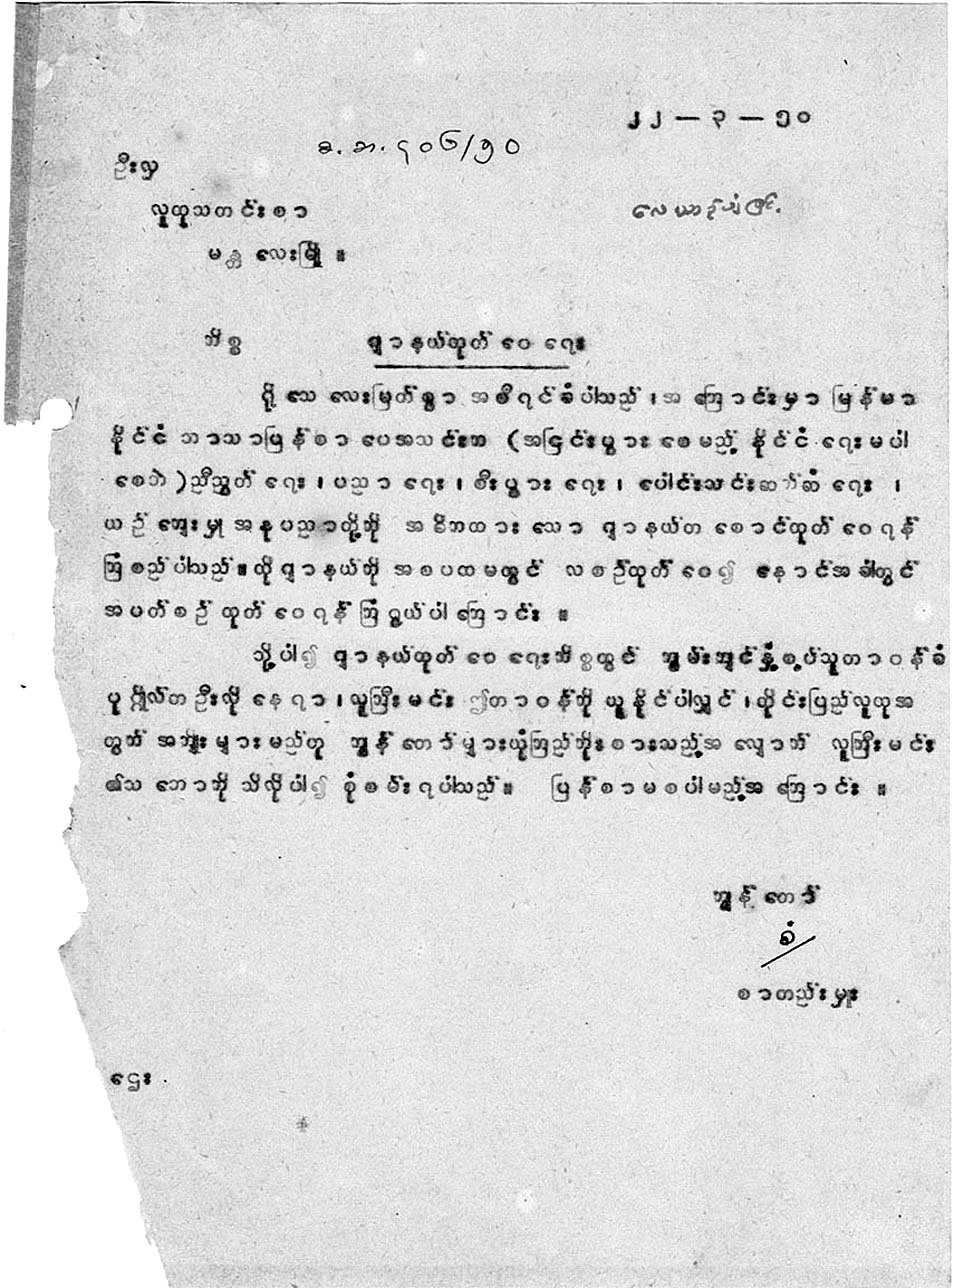 ၂၂ — ၃ — ၅၀
စ.ဘ.၄၀၆/၅၀
ဦးလှ
လူထုသတင်းစာ
မန္တလေးမြို့ ။
ကိစ္စ ဂျာနယ်ထုတ်ဝေရေး
ရို သေလေးမြတ်စွာ အစီရင်ခံပါသည် ၊ အကြောင်းမှာ မြန်မာ
နိုင်ငံ ဘာသာပြန်စာပေအသင်းက (အငြင်းပွားစေမည့် နိုင်ငံရေးမပါ
စေဘဲ )ညီညွတ်ရေး ၊ ပညာရေး ၊ စီးပွားရေး ၊ ပေါင်းသင်းဆက်ဆံရေး ၊
ယဉ်ကျေးမှု အနုပညာတို့ကို အဓိကထားသော ဂျာနယ်တစောင်ထုတ်ဝေရန်
ကြံစည်ပါသည်။ထိုဂျာနယ်ကို အစပထမတွင် လစဉ်ထုတ်ဝေ၍ နောင်အခါတွင်
အပတ်စဉ် ထုတ်ဝေရန် ကြံရွယ်ပါကြောင်း ။
သို့ပါ၍ ဂျာနယ်ထုတ်ဝေရေးကိစ္စတွင် ကျွမ်းကျင်နှံ့စပ်သူတာဝန်ခံ
ပုဂ္ဂိုလ်တဦးလိုနေရာ ၊လူကြီးမင်း ဤတာဝန်ကို ယူနိုင်ပါလျှင် ၊တိုင်းပြည်လူထုအ
တွက် အကျိုးများမည်ဟု ကျွန်တော်များယုံကြည်ကိုးစားသည့်အလျောက် လူကြီးမင်း
၏သဘောကို သိလိုပါ၍ စုံစမ်းရပါသည်။ ပြန်စာမစပါမည့်အကြောင်း ။
ကျွန်တော်
စာတည်းမှူး
ဌေး .